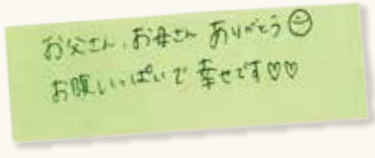 お父さん、お母さん ありがとう☺
お腹いっぱいで 幸せです♡♡